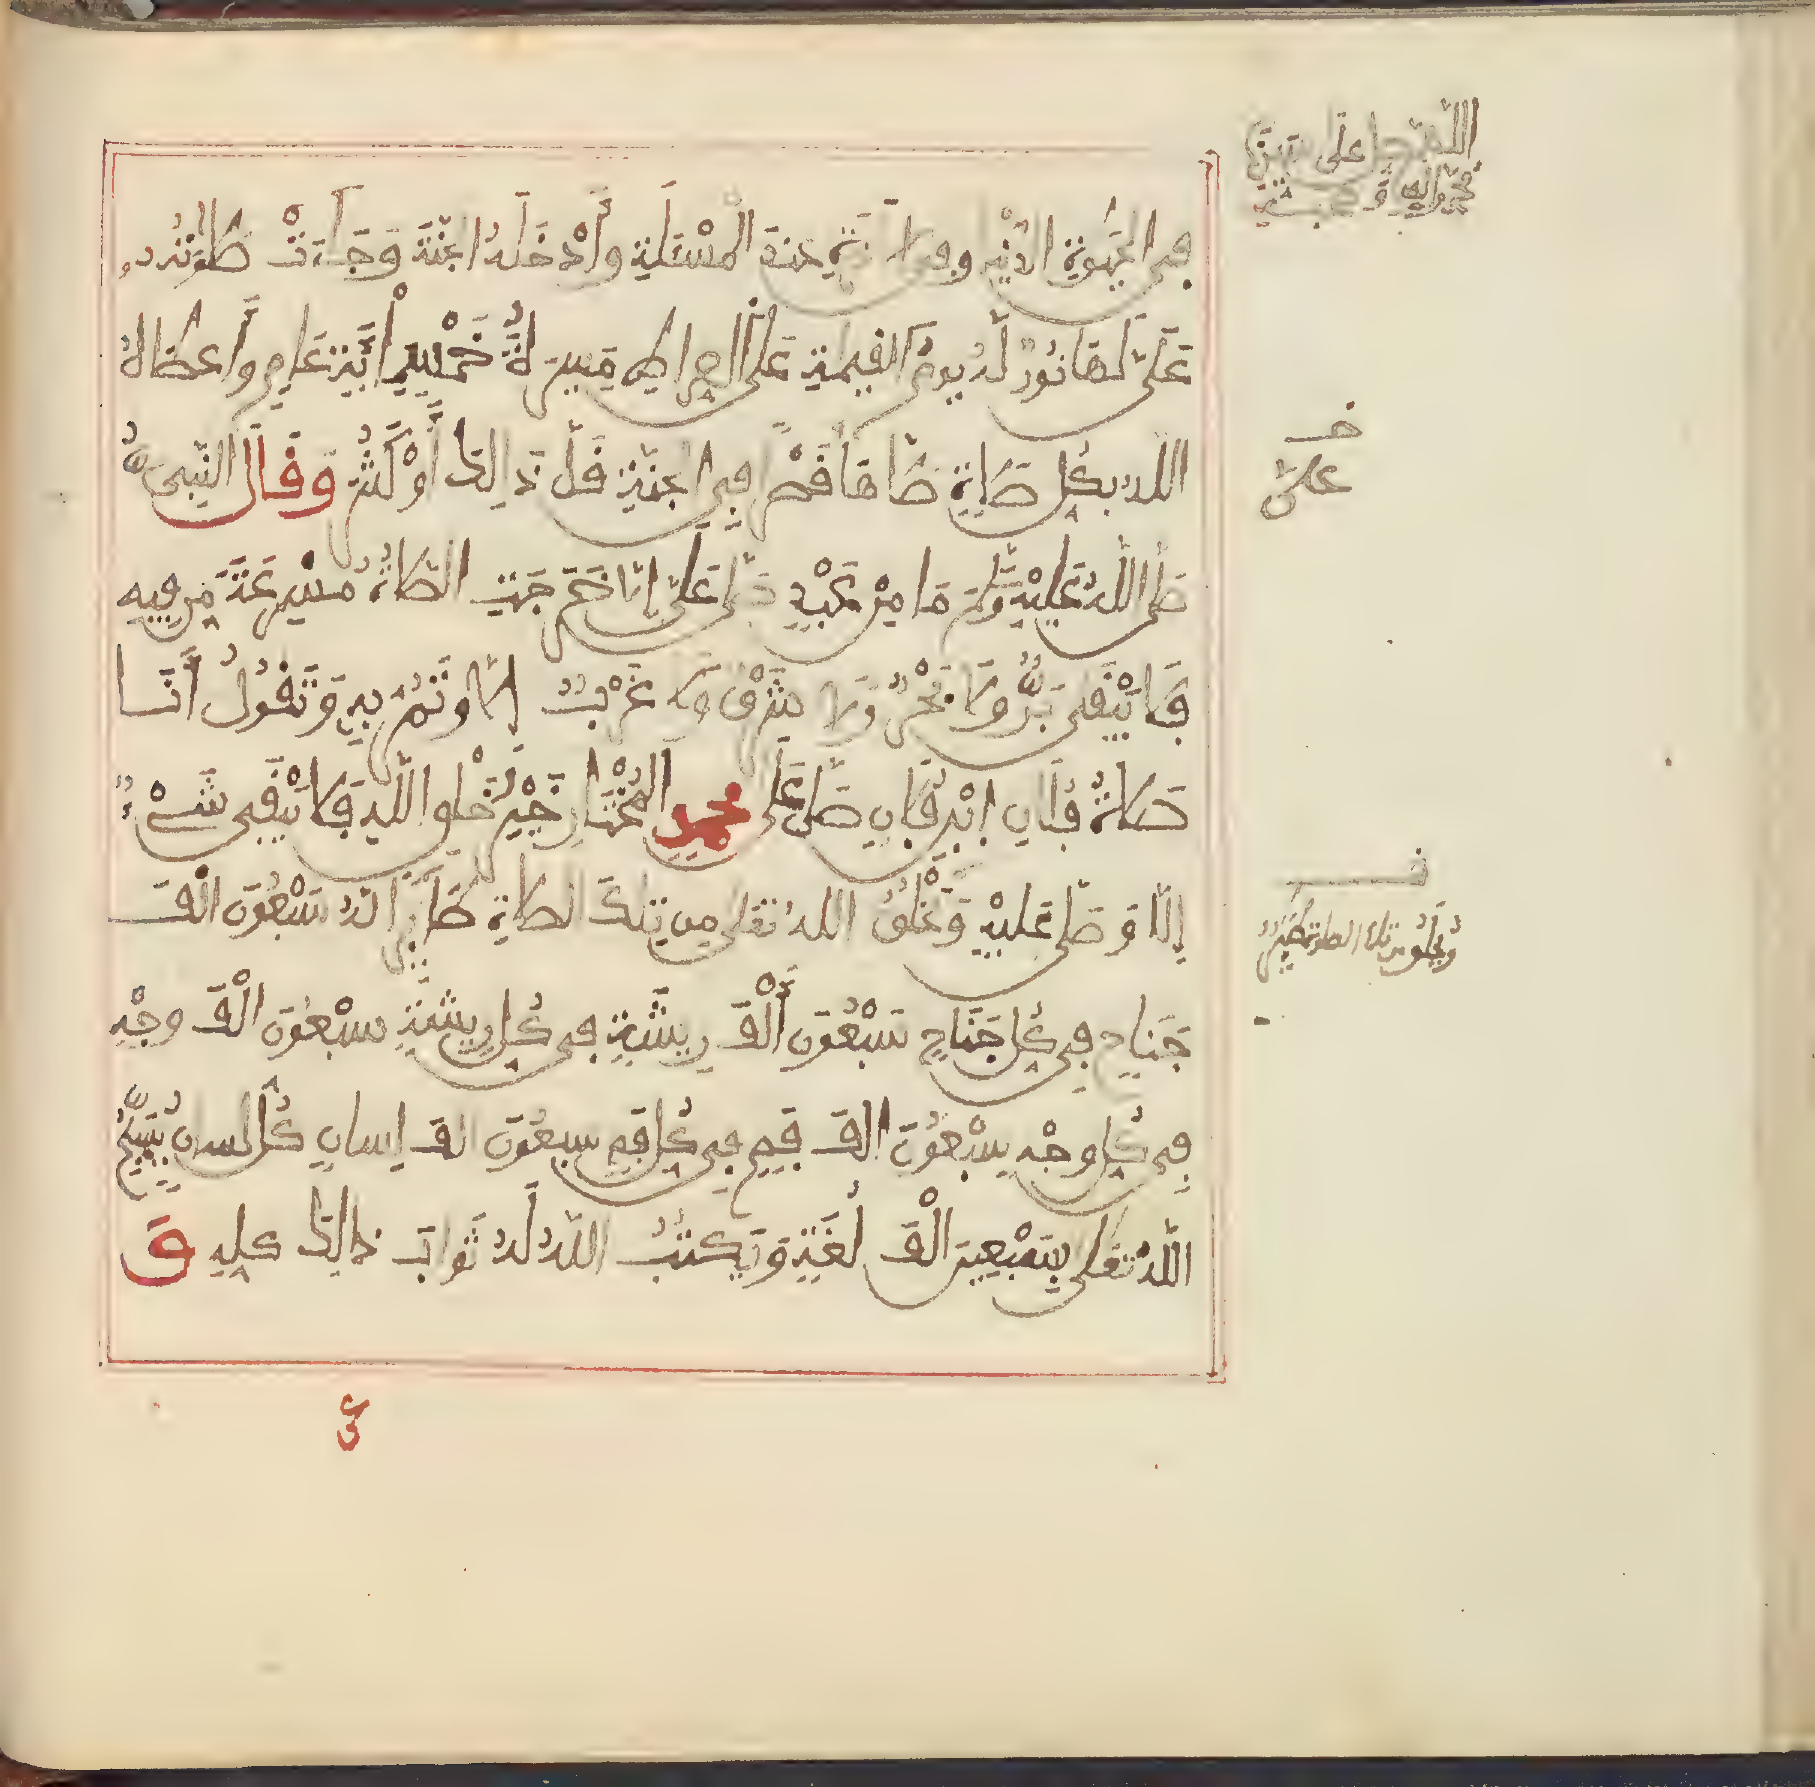 فِى الْحَيَوٰةِ الدُّنْيَا وَفِى الْأَخِرَةِ عِنْدَ الْمَسْئَلَةِ وَأَدْخَلَهُ الْجَنَّةَ وَجَآءَتْ صَلَوٰتُهُ
عَلَىَّ لَهَا نُورٌ لَهُ يَوْمَ الْقِيَٰمَةِ عَلَى الصِّرَاطِ مَسِيرَةَ خَمْسِمِائَةِ عَامٍ وَأَعْطَاهُ
اللَّهُ بِكُلِّ صَلَاةٍ صَلَّاهَا قَصْرًا فِى الْجَنَّةِ قَلَّ ذَالِكَ أَوْ كَثُرَ وَقَالَ النَّبِىُّ
صَلَّى اللَّهُ عَلَيْهِ وَسَلَّمَ مَا مِنْ عَبْدٍ صَلَّى عَلَىَّ إِلَّا خَرَجَتِ الصَّلَاةُ مُسْرِعَةً مِّن فِيهِ
فَلَا يَبْقَى بَرٌّ وَلَا بَحْرٌ وَلَا شَرْقٌ وَلَا غَرْبٌ إِلَّا وَتَمُرُّ بِهِ وَتَقُولُ أَنَا
صَلَاةُ فُلَانِ ابْنِ فُلَانٍ صَلَّى عَلَى مُحَمَّدٍ الْمُخْتَارِ خَيْرِ خَلْقِ اللَّهِ فَلَا يَبْقَى شَىْءٌ
إِلَّا وَصَلَّى عَلَيْهِ وَيَخْلُقُ اللَّهُ تَعَلَى مِن تِلْكَ الصَّلَاةِ طَآئِرًا لَهُ سَبْعُونَ أَلْفَ
جَنَاحٍ فِى كُلِّ جَنَاحٍ سَبْعُونَ أَلْفَ رِيشَةٍ فِى كُلِّ رِيشَةٍ سَبْعُونَ أَلْفَ وَجْهٍ
فِى كُلِّ وَجْهٍ سَبْعُونَ أَلْفَ فَمٍ فِى كُلِّ فَمٍ سَبْعُونَ أَلْفَ لِسَانٍ كُلُّ لِسَانٍ يُسَبِّحُ
اللَّهَ تَعَلَى بِسَبْعِينَ أَلْفَ لُغَةٍ وَيَكْتُبُ اللَّهُ لَهُ ثَوَابَ ذَالِكَ كُلِّهِ وَ
اللهم صل على
محمد واله و
خـ
عَلَىَّ
وَيُخْلَقُ من تلك الصلوة